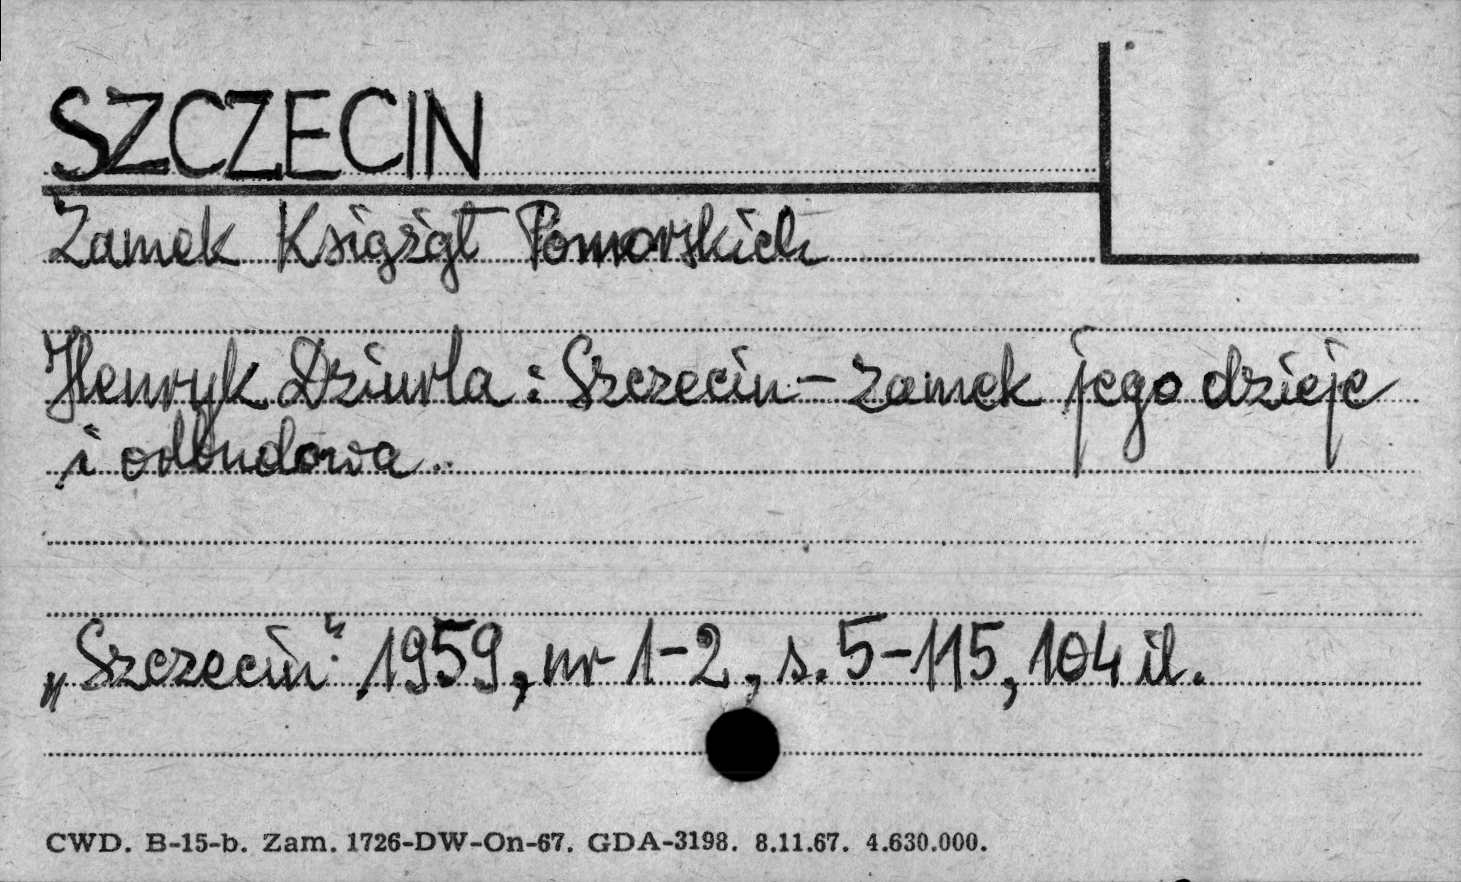 SZCZECIN
Zamek Książąt Pomorskich
Henryk Dziurla: Szczecin – zamek jego dzieje
i odbudowa.
„Szczecin“ 1959, nr 1-2, s. 5-115, 104 il.
CWD. B-15-b. Zam. 1726-DW-On-67. GDA-3198. 8.11.67. 4.630.000.